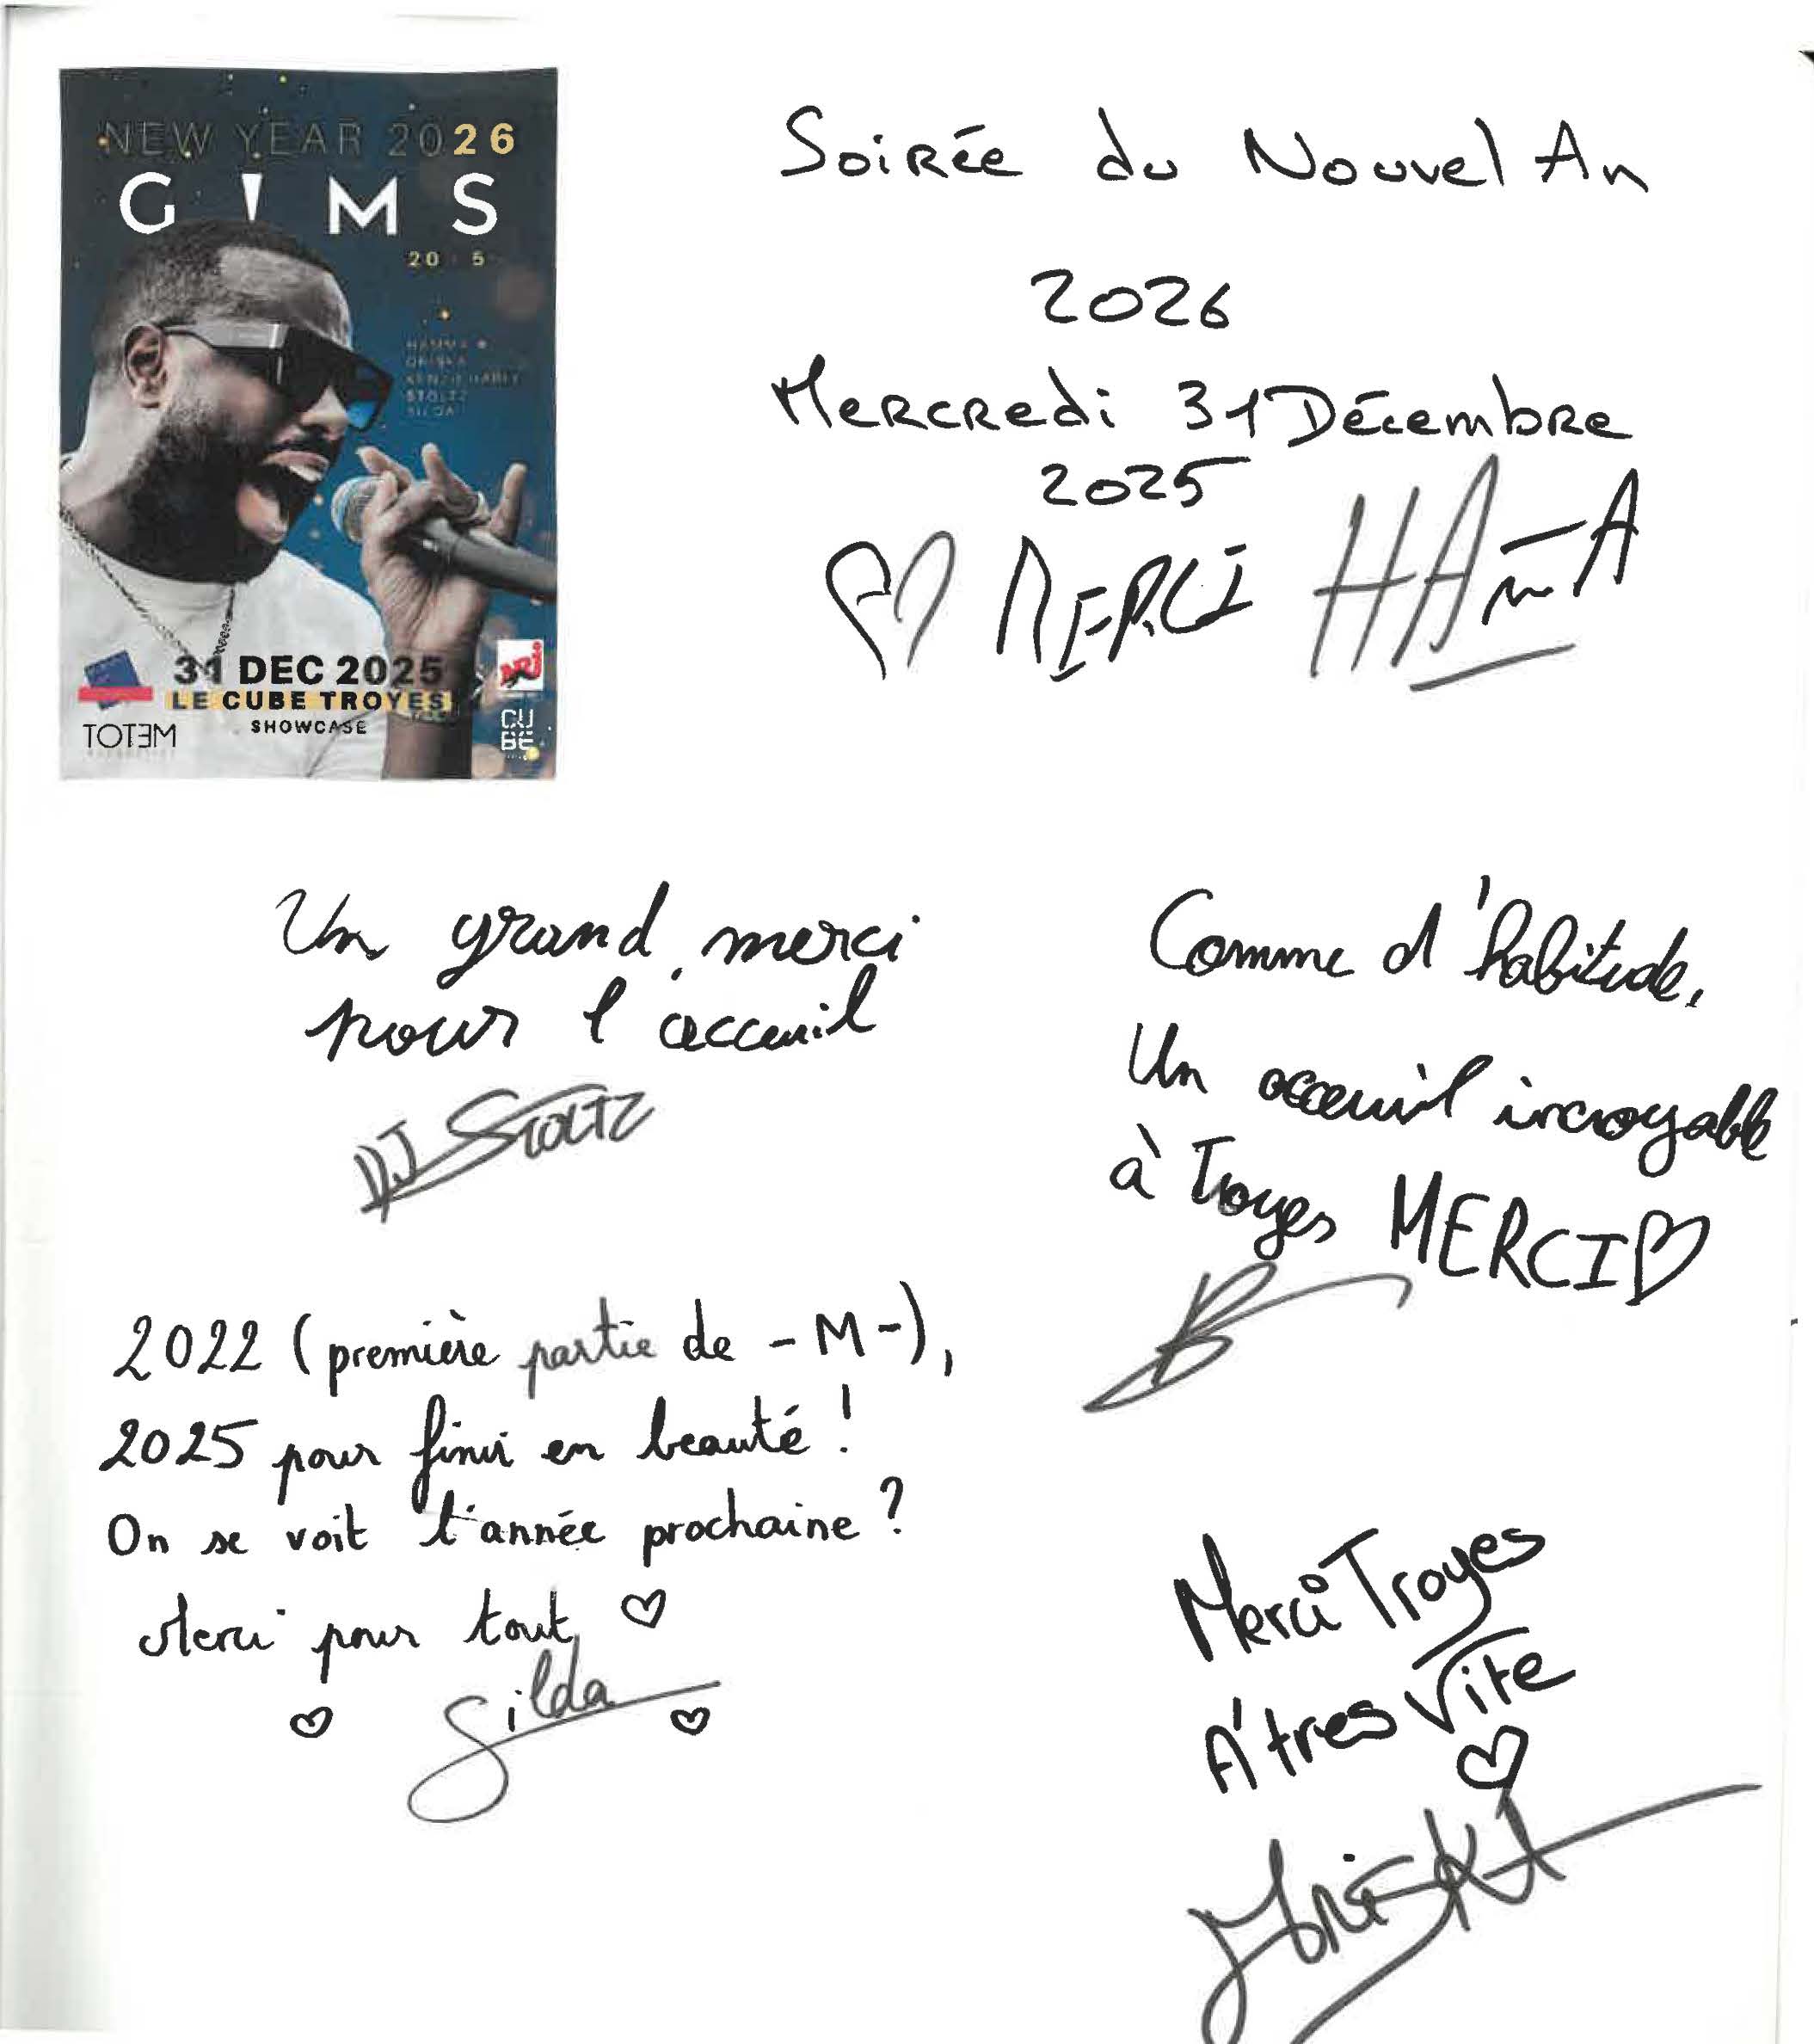 NEW YEAR 2026
GIMS
20 5
STOLTZ
31 DEC 2025
LE CUBE TROYES
SHOWCASE
TOTEM
NRJ
CUBE
Soirée du Nouvel An
2026
Mercredi 31 Décembre
2025
MERCI
Un grand merci
pour l'acceuil
DJ STOLTZ
Comme d'habitude,
Un acceuil incroyable
à Troyes MERCI
2022 (première partie de -M-),
2025 pour finir en beauté !
On se voit l'année prochaine ?
Merci pour tout
Gilda
Merci Troyes
A tres vite